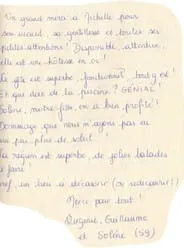 Un grand merci à Michelle pour
son accueil, sa gentillesse et toutes ses
petites attentions! Disponible, attentive,
elle est une hôtesse en or!
Le gîte est superbe, fonctionnel, tout y est!
Et que dire de la piscine? GENIAL!
Solène, notre fille, en a bien profité!
Dommage que nous n'ayons pas eu
un peu plus de soleil.
La région est superbe, de jolies balades
à faire.
Bref, un lieu à découvrir (ou redécouvrir!)
Merci pour tout!
Eugénie, Guillaume
et Solène (59)